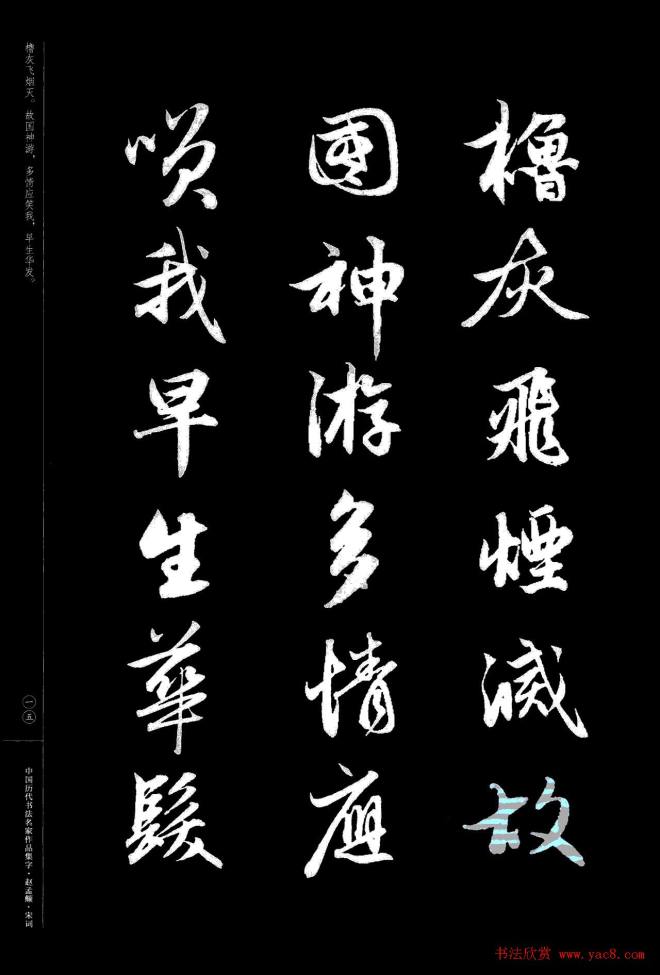 櫓灰飛煙滅故
國神游多情應
唉我早生華髮
櫓灰飞烟灭。故国神游,多情应笑我,早生华发。
一五
中国历代书法名家作品集字·赵孟頫·宋词
书法欣赏 www.yac8.com